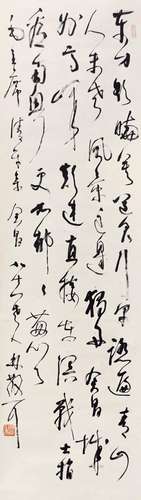 东方欲晓莫道君行早踏遍青山
人未老风景这边独好会昌城
外高峰颠连直接东溟战士指
看南粤更加郁〻葱〻
毛主席清平乐会昌 八十一老人林散耳